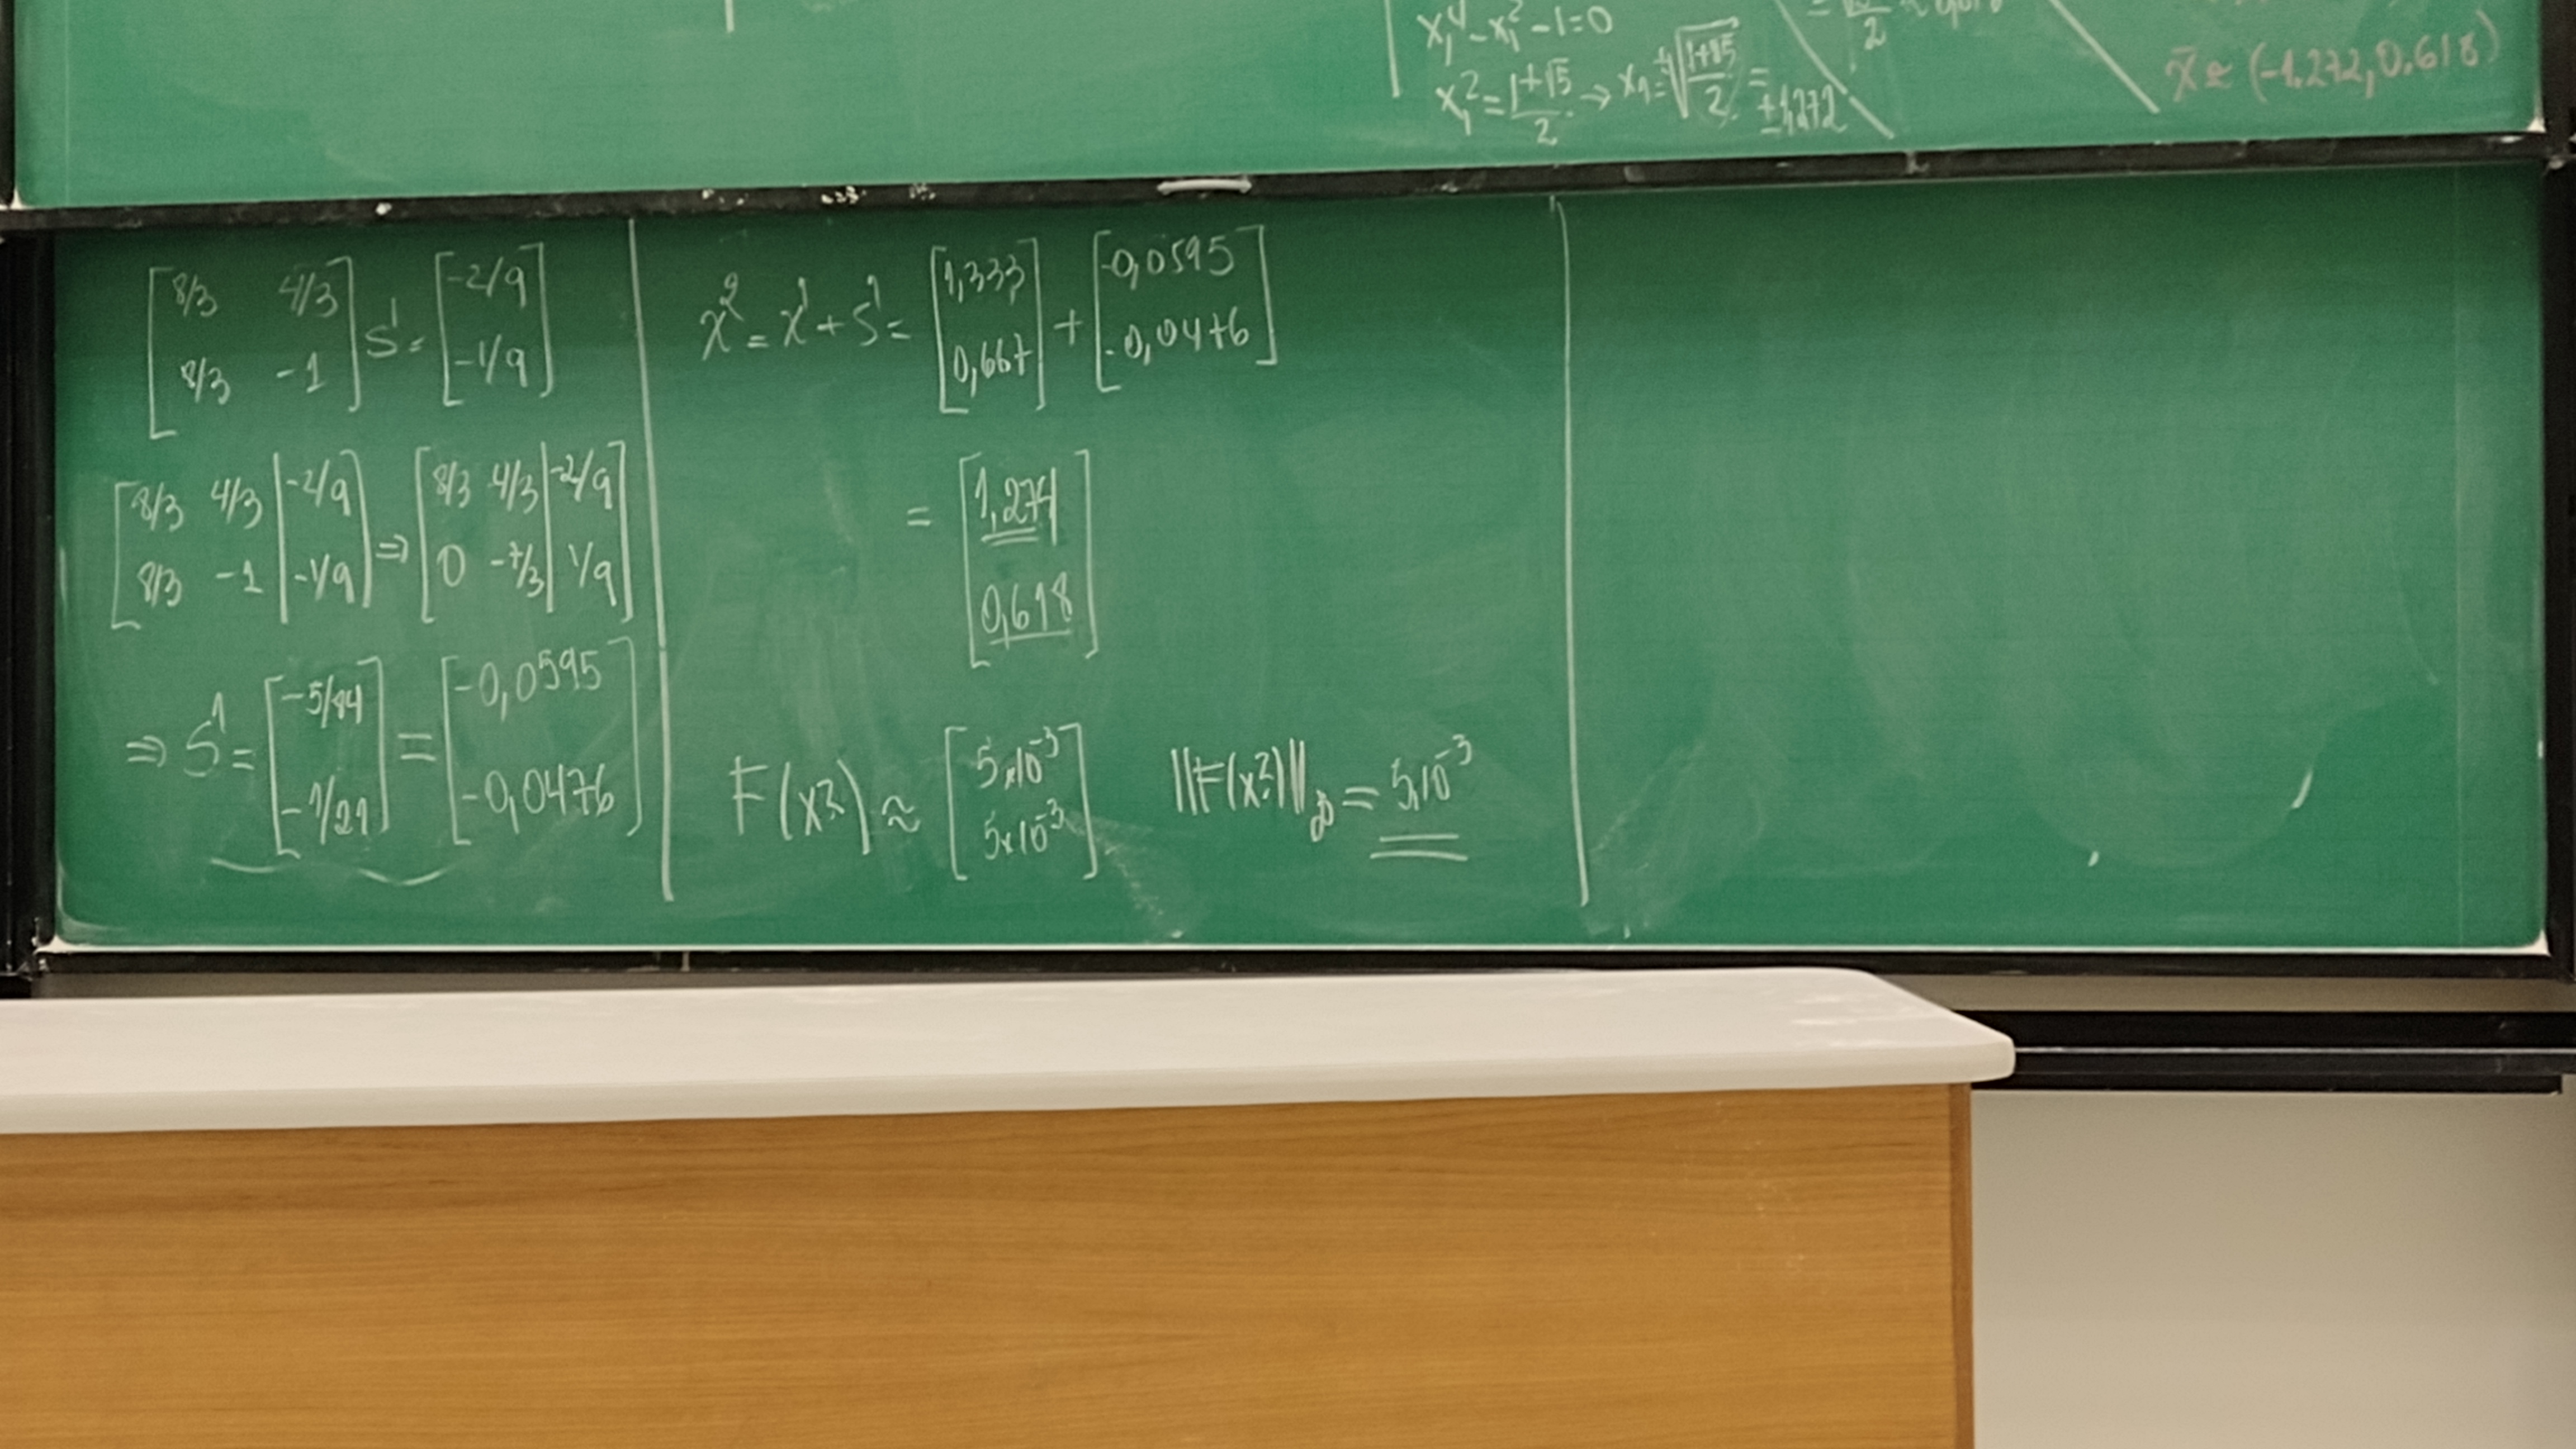 x₁⁴ - x₁² - 1 = 0
x₁² = (1+√5)/2 → x₁ = ±√((1+√5)/2) = ±1,272
x̄ ≈ (-1.272, 0.618)
[8/3 4/3; 8/3 -1] S¹ = [-2/9; -1/9]
[8/3 4/3 | -2/9; 8/3 -1 | -1/9] ⇒ [8/3 4/3 | -2/9; 0 -7/3 | 1/9]
⇒ S¹ = [-5/84; -1/21] = [-0,0595; -0,0476]
x² = x¹ + S¹ = [1,333; 0,667] + [-0,0595; -0,0476]
= [1,274; 0,618]
F(x²) ≈ [5×10⁻³; 5×10⁻³] ||F(x²)||∞ = 5×10⁻³